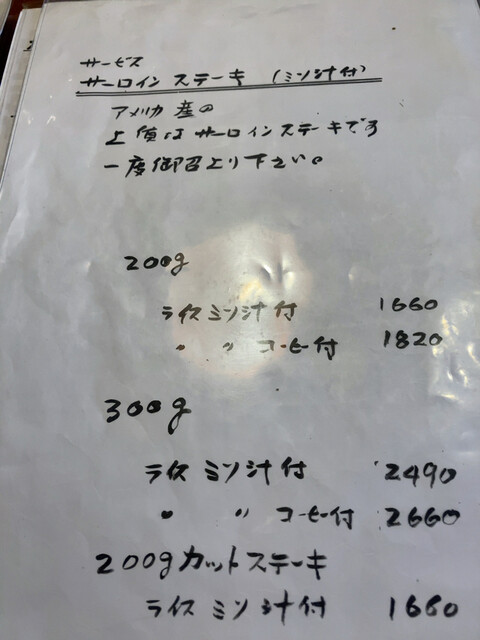 サービス
サーロインステーキ (ミソ汁付)
アメリカ産の
上質なサーロインステーキです
一度御召上り下さい。
200g
ライス ミソ汁付 1660
〃 〃 コーヒー付 1820
300g
ライス ミソ汁付 2490
〃 〃 コーヒー付 2660
200gカットステーキ
ライス ミソ汁付 1660